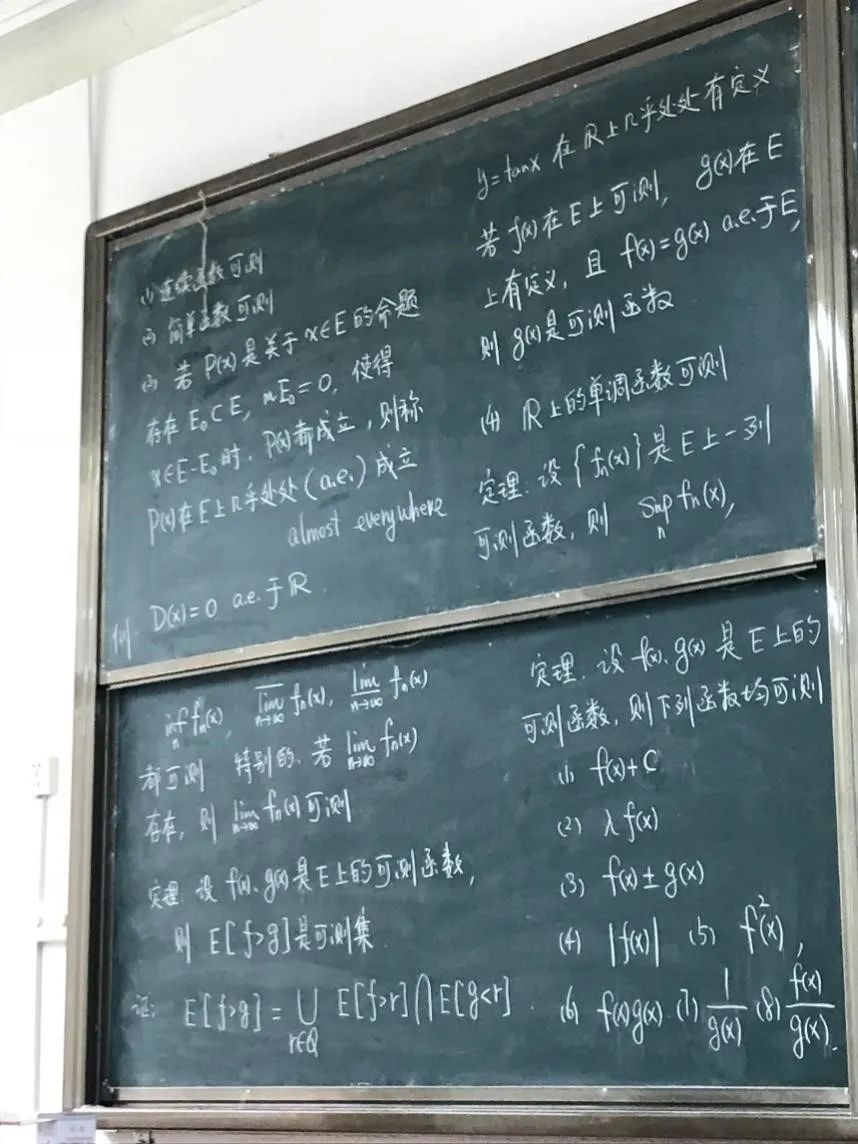 (1) 连续函数可测
(2) 简单函数可测
(3) 若 P(x) 是关于 x∈E 的命题
存在 E₀⊂E, mE₀=0, 使得
x∈E-E₀时, P(x)都成立, 则称
P(x)在E上几乎处处(a.e.)成立
almost everywhere
例. D(x)=0 a.e.于ℝ.
y=tanx 在ℝ上几乎处处有定义
若 f(x)在E上可测, g(x)在E
上有定义, 且 f(x)=g(x) a.e.于E,
则 g(x)是可测函数
(4) ℝ上的单调函数可测
定理. 设{fₙ(x)}是E上一列
可测函数, 则 sup_n fₙ(x),
inf_n fₙ(x), \overline{lim}_{n→∞} fₙ(x), \underline{lim}_{n→∞} fₙ(x)
都可测 特别的, 若 lim_{n→∞} fₙ(x)
存在, 则 lim_{n→∞} fₙ(x)可测
定理 设 f(x), g(x)是E上的可测函数,
则 E[f>g]是可测集.
证: E[f>g] = ⋃_{r∈Q} E[f>r]⋂E[g<r].
定理. 设 f(x), g(x) 是E上的
可测函数, 则下列函数均可测
(1) f(x)+C
(2) λf(x)
(3) f(x)±g(x)
(4) |f(x)| (5) f²(x),
(6) f(x)g(x). (7) 1/g(x) (8) f(x)/g(x).